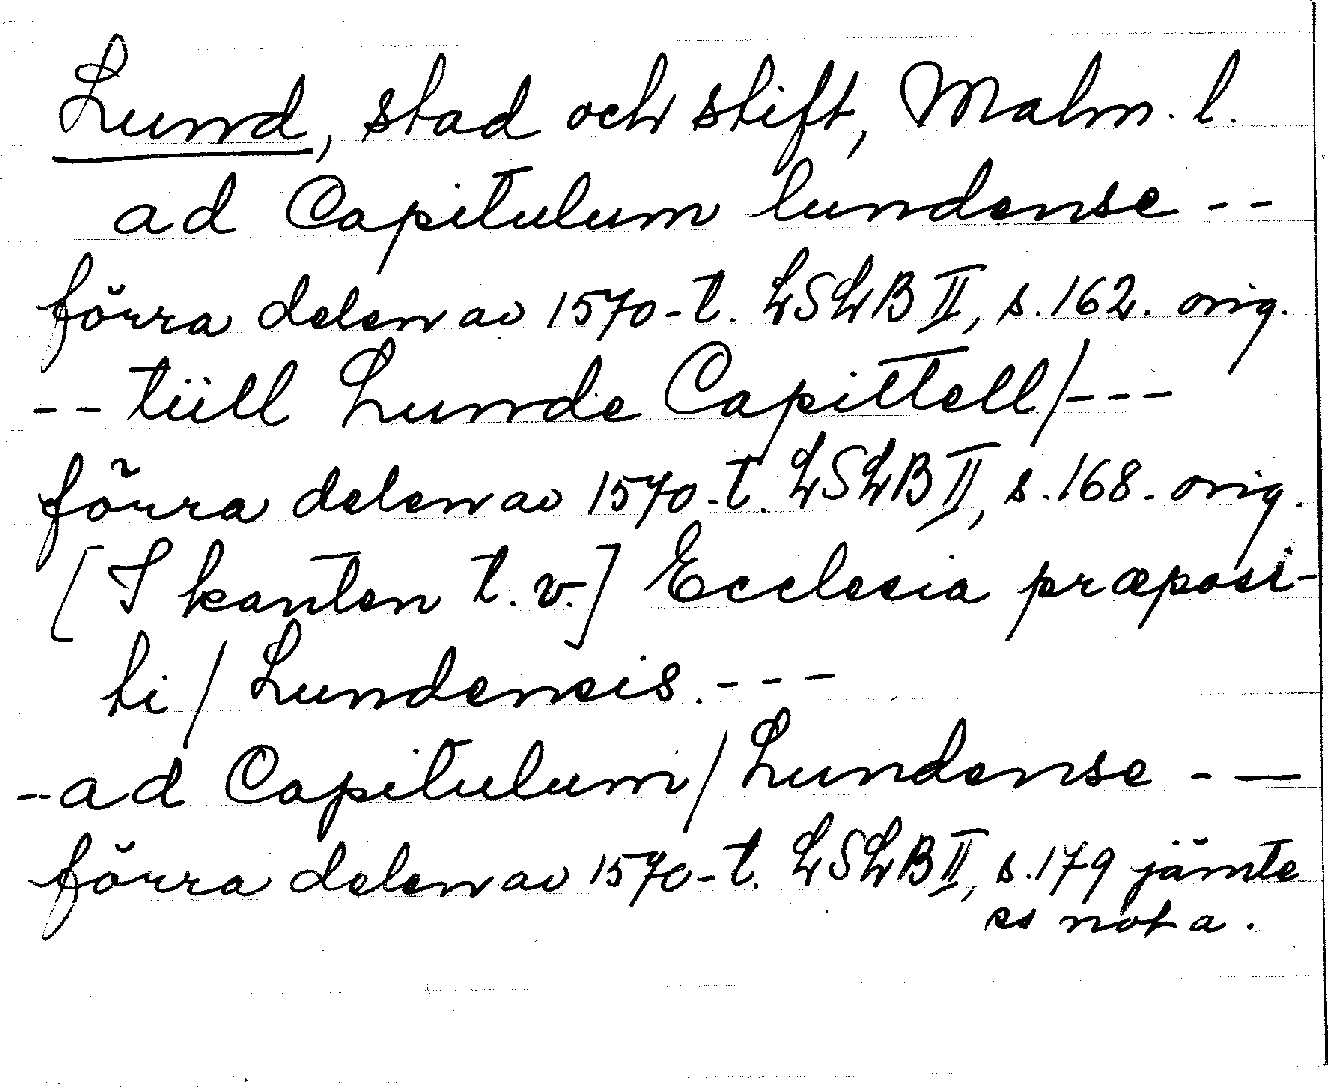 Lund, stad och stift, Malm. l.
ad Capitulum lundense --
förra delen av 1570-t. LSLB II, s. 162. orig.
-- tüll Lunde Capittell/---
förra delen av 1570-t. LSLB II, s. 168. orig.
[I kanten t. v.] Ecclesia præposi-
ti/Lundensis.---
-ad Capitulum/Lundense -—
förra delen av 1570-t. LSLB II, s. 179 jämte
not a.